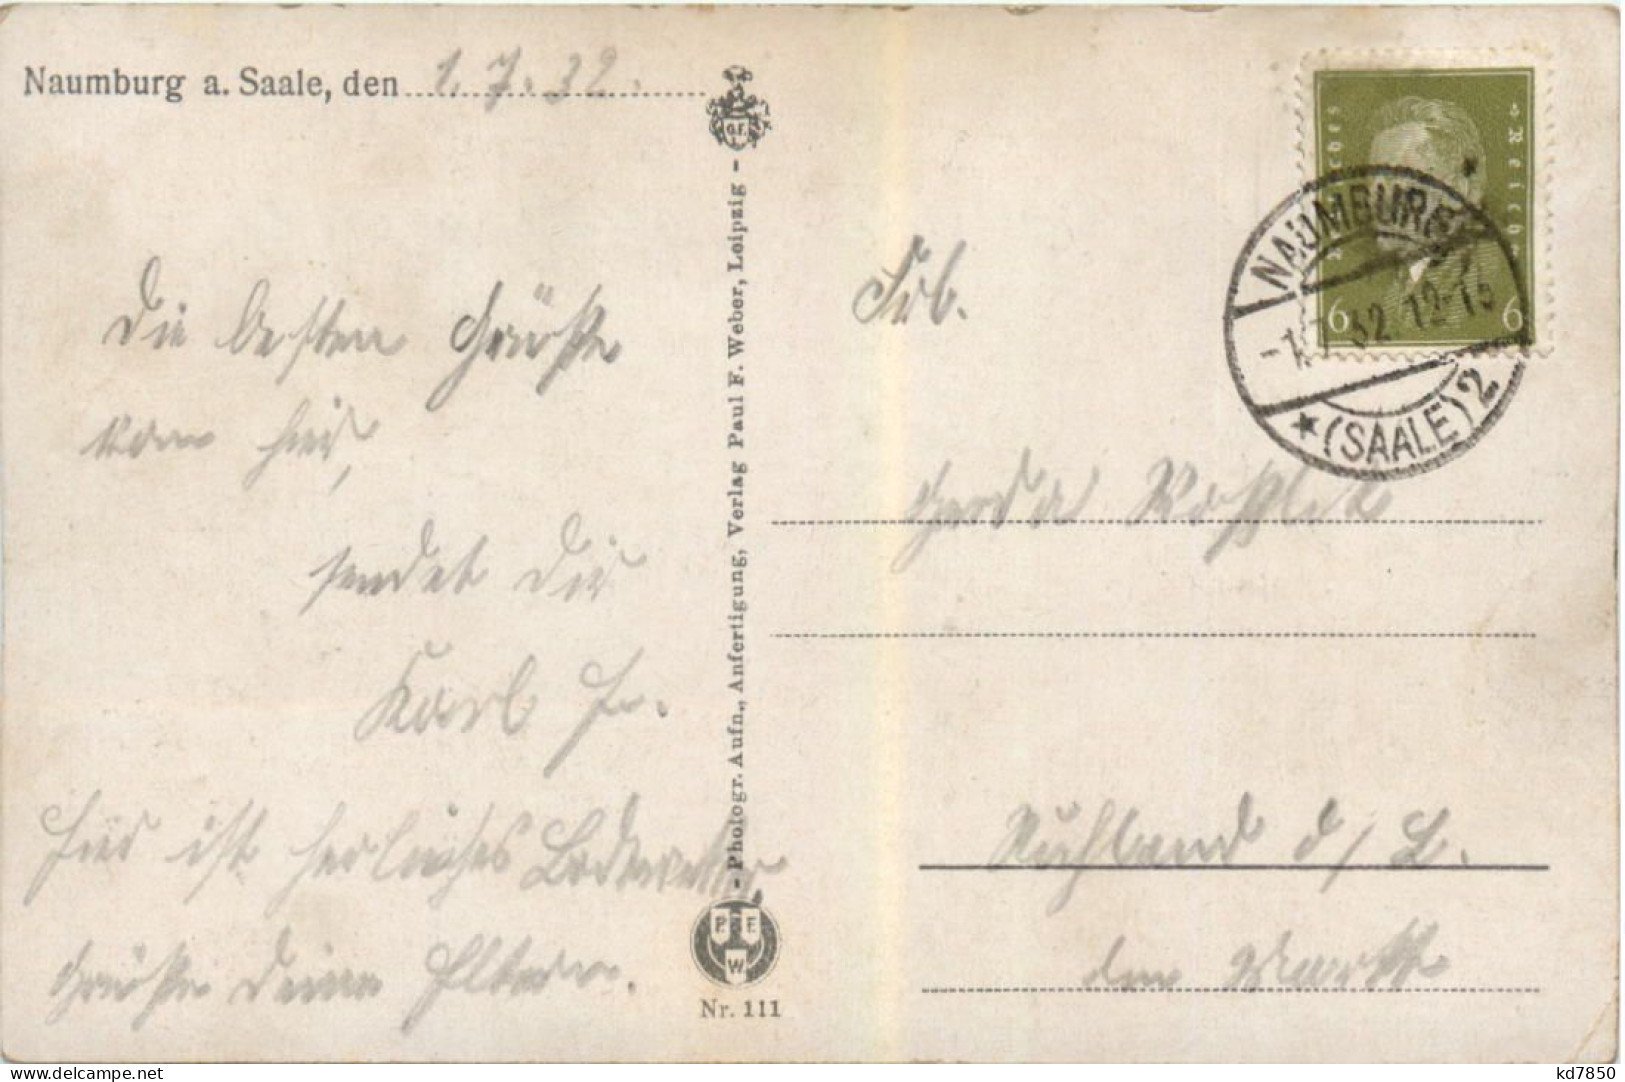 Naumburg a. Saale, den 1. 7. 32.
Die besten Grüße
von hier,
sendet Dir
Karl
Hier ist herliches Badewetter,
Grüße Deine Eltern.
- Photogr. Aufn., Anfertigung, Verlag Paul F. Weber, Leipzig -
P F W
Nr. 111
Deutsches Reich
6 6
NAUMBURG
-1.7.32.12-13
★ (SAALE) 2
Frl.
Gerda
Ruhland
Markt
kd7850